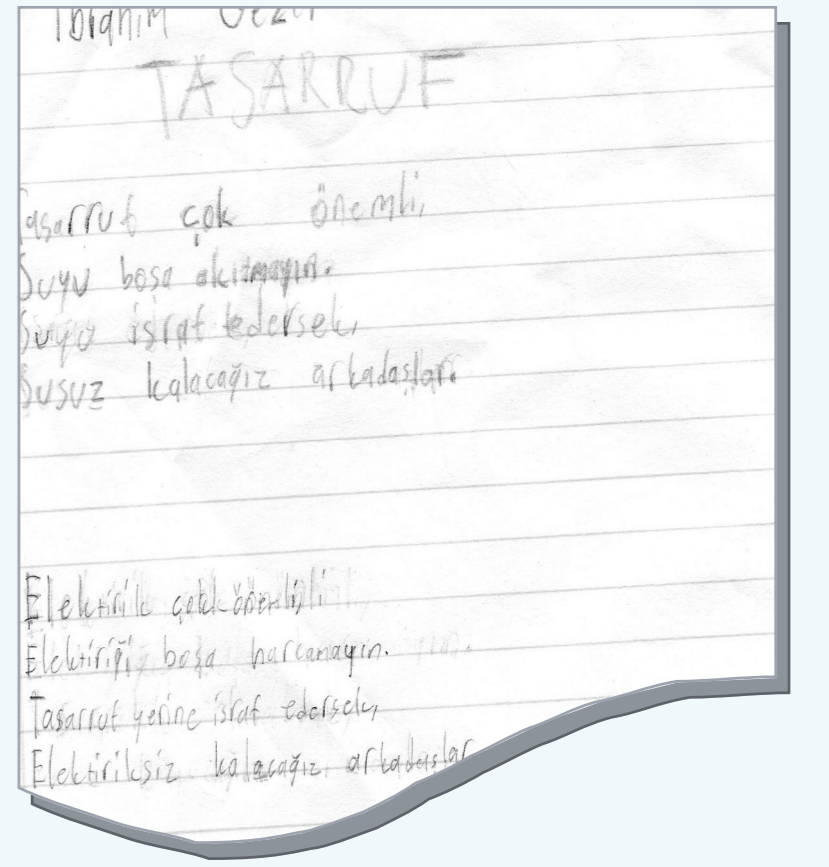 İbrahim
TASARRUF
Tasarruf çok önemli,
Suyu boşa akıtmayın.
Suyu israf edersek,
Susuz kalacağız arkadaşlar.
Elektirik çok önemli,
Elektiriği boşa harcamayın.
Tasarruf yerine israf edersek,
Elektiriksiz kalacağız arkadaşlar